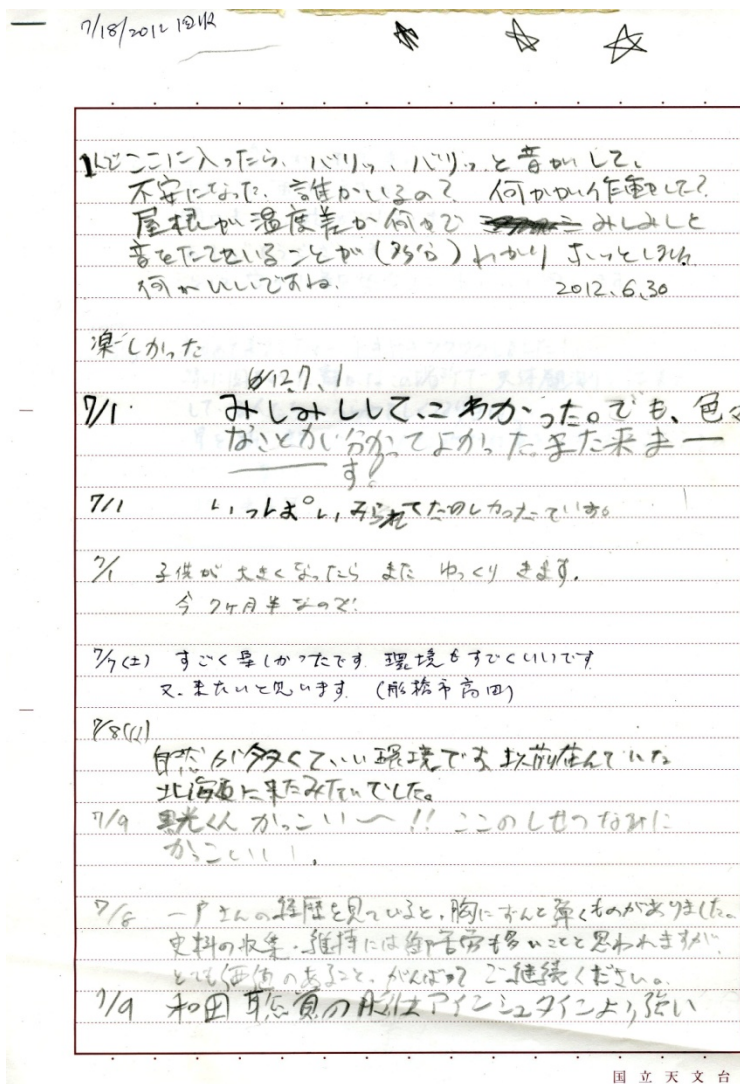 7/18/2012 回収
1人でここに入ったら、バリッ、バリッと音がして、
不安になった。誰かいるの? 何かが作動して?
屋根が温度差か何かで みしみしと
音をたてていることが(多分)わかり ほっとしました。
何かいいですね。 2012.6.30
楽しかった
'12.7.1
7/1 みしみししてこわかった。でも、色々
なことが分かってよかった。また来ま
す。
7/1 いっぱいみられてたのしかったでいす。
7/1 子供が大きくなったら また ゆっくり きます。
今 7ヶ月半なので!
7/7(土) すごく楽しかったです 環境もすごくいいです
又、来たいと思います (船橋市高田)
7/8(日)
自然が多くていい環境です 以前住んでいた
北海道に来たみたいでした。
7/9 くん かっこい〜!! ここのしせつなみに
かっこいい。
7/8 一戸さんの経歴を見ていると、胸にずんと響くものがありました。
史料の収集・維持には御苦労も多いことと思われますが、
とても価値のあること、がんばって ご継続ください。
7/9 和田 の はアインシュタインより強い
国立天文台